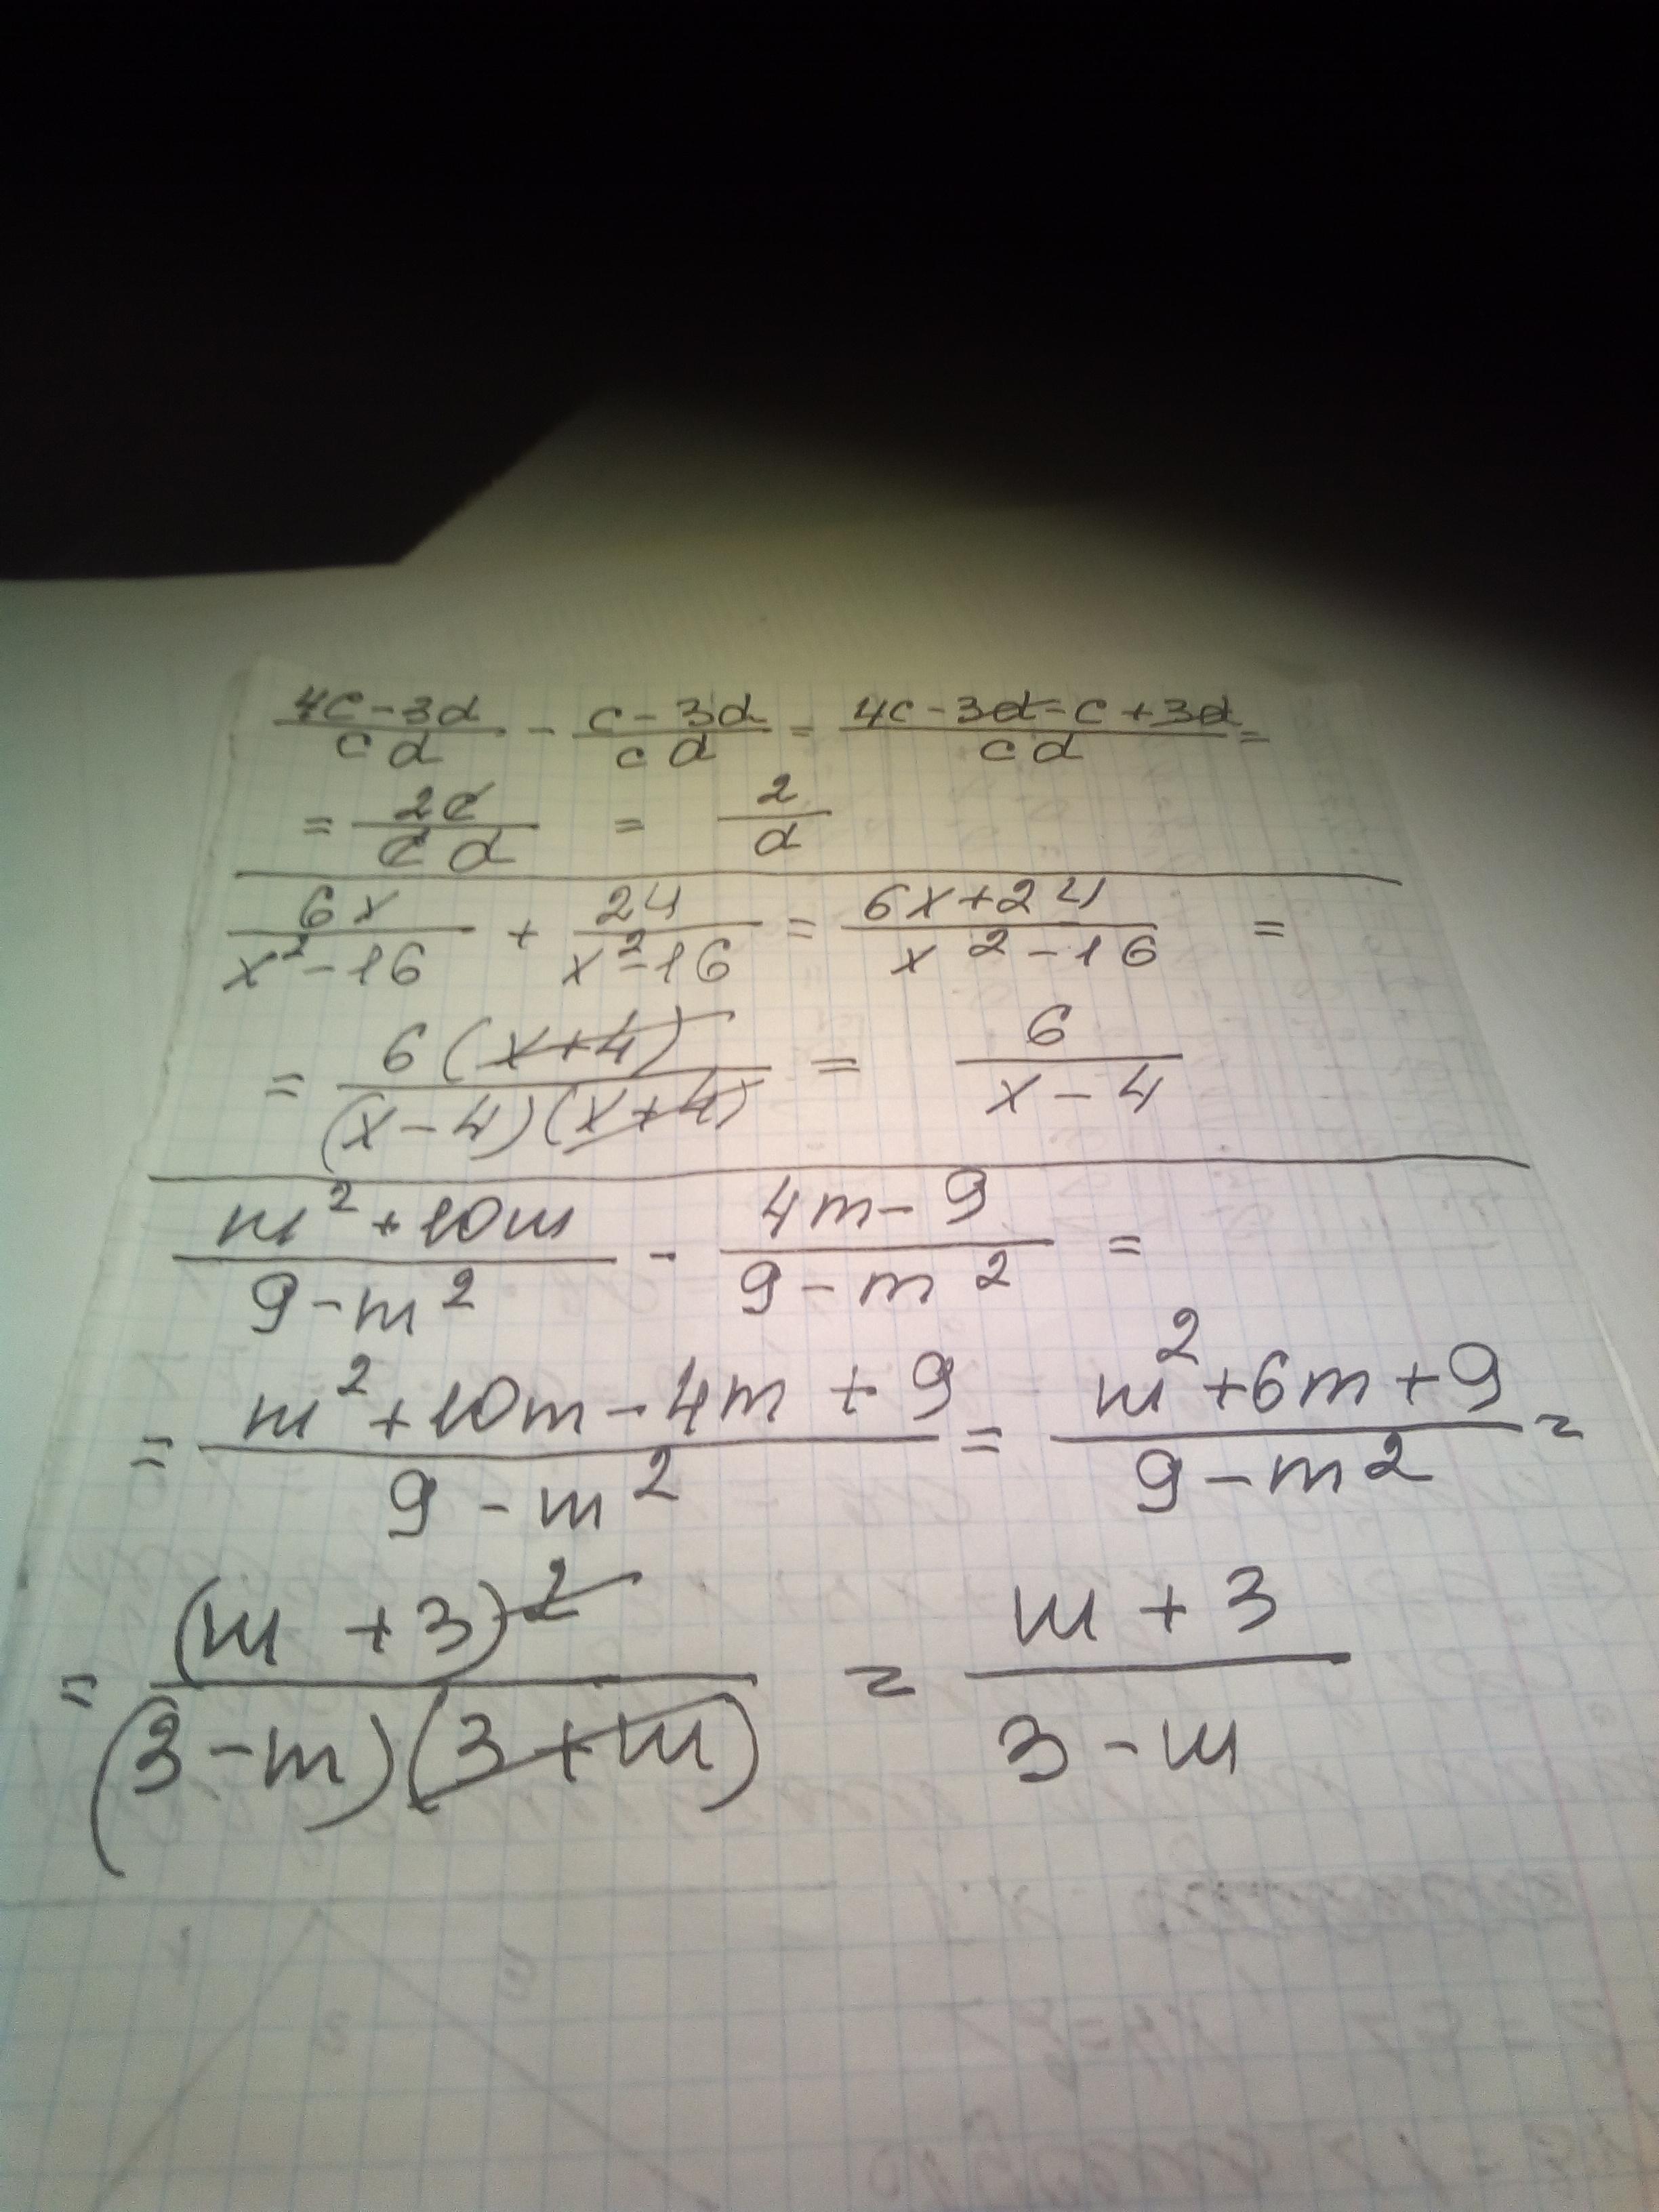 (4c-3d)/(cd) - (c-3d)/(cd) = (4c-3d-c+3d)/(cd) =
= (2c)/(cd) = 2/d
6x/(x²-16) + 24/(x²-16) = (6x+24)/(x²-16) =
= 6(x+4)/((x-4)(x+4)) = 6/(x-4)
(m²+10m)/(9-m²) - (4m-9)/(9-m²) =
= (m²+10m-4m+9)/(9-m²) = (m²+6m+9)/(9-m²) =
= (m+3)²/((3-m)(3+m)) = (m+3)/(3-m)